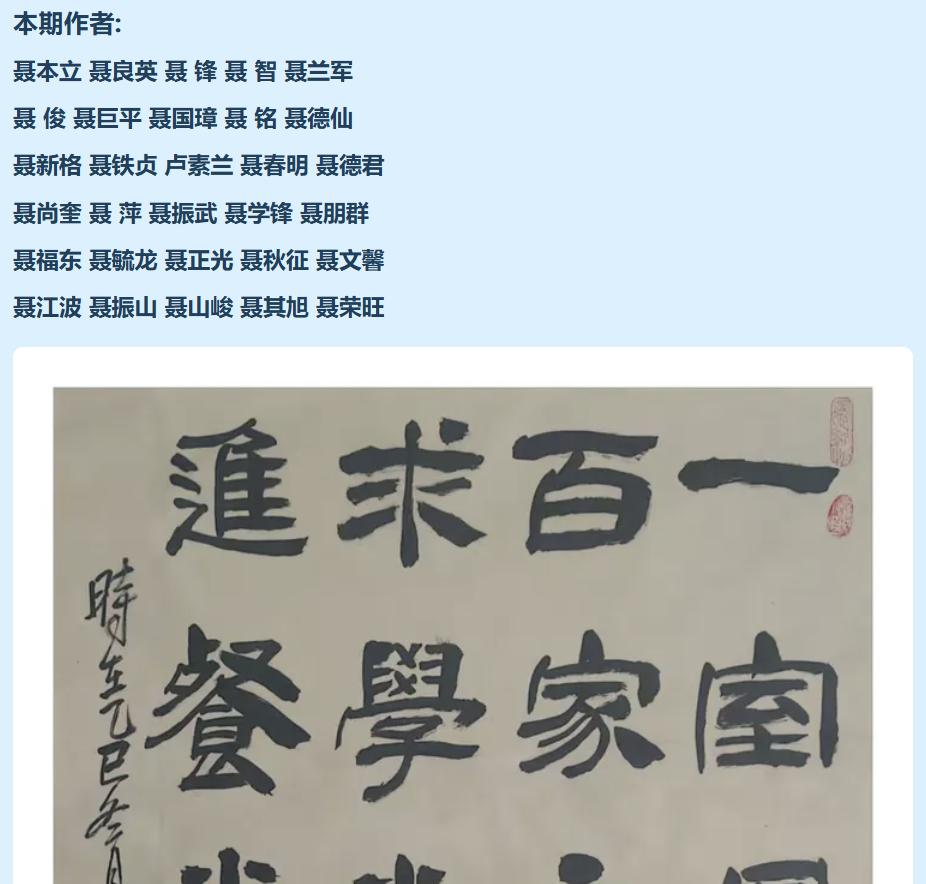 本期作者:
聂本立 聂良英 聂 锋 聂 智 聂兰军
聂 俊 聂巨平 聂国璋 聂 铭 聂德仙
聂新格 聂铁贞 卢素兰 聂春明 聂德君
聂尚奎 聂 萍 聂振武 聂学锋 聂朋群
聂福东 聂毓龙 聂正光 聂秋征 聂文馨
聂江波 聂振山 聂山峻 聂其旭 聂荣旺
一室
百家
求學
進餐
時在乙巳冬月